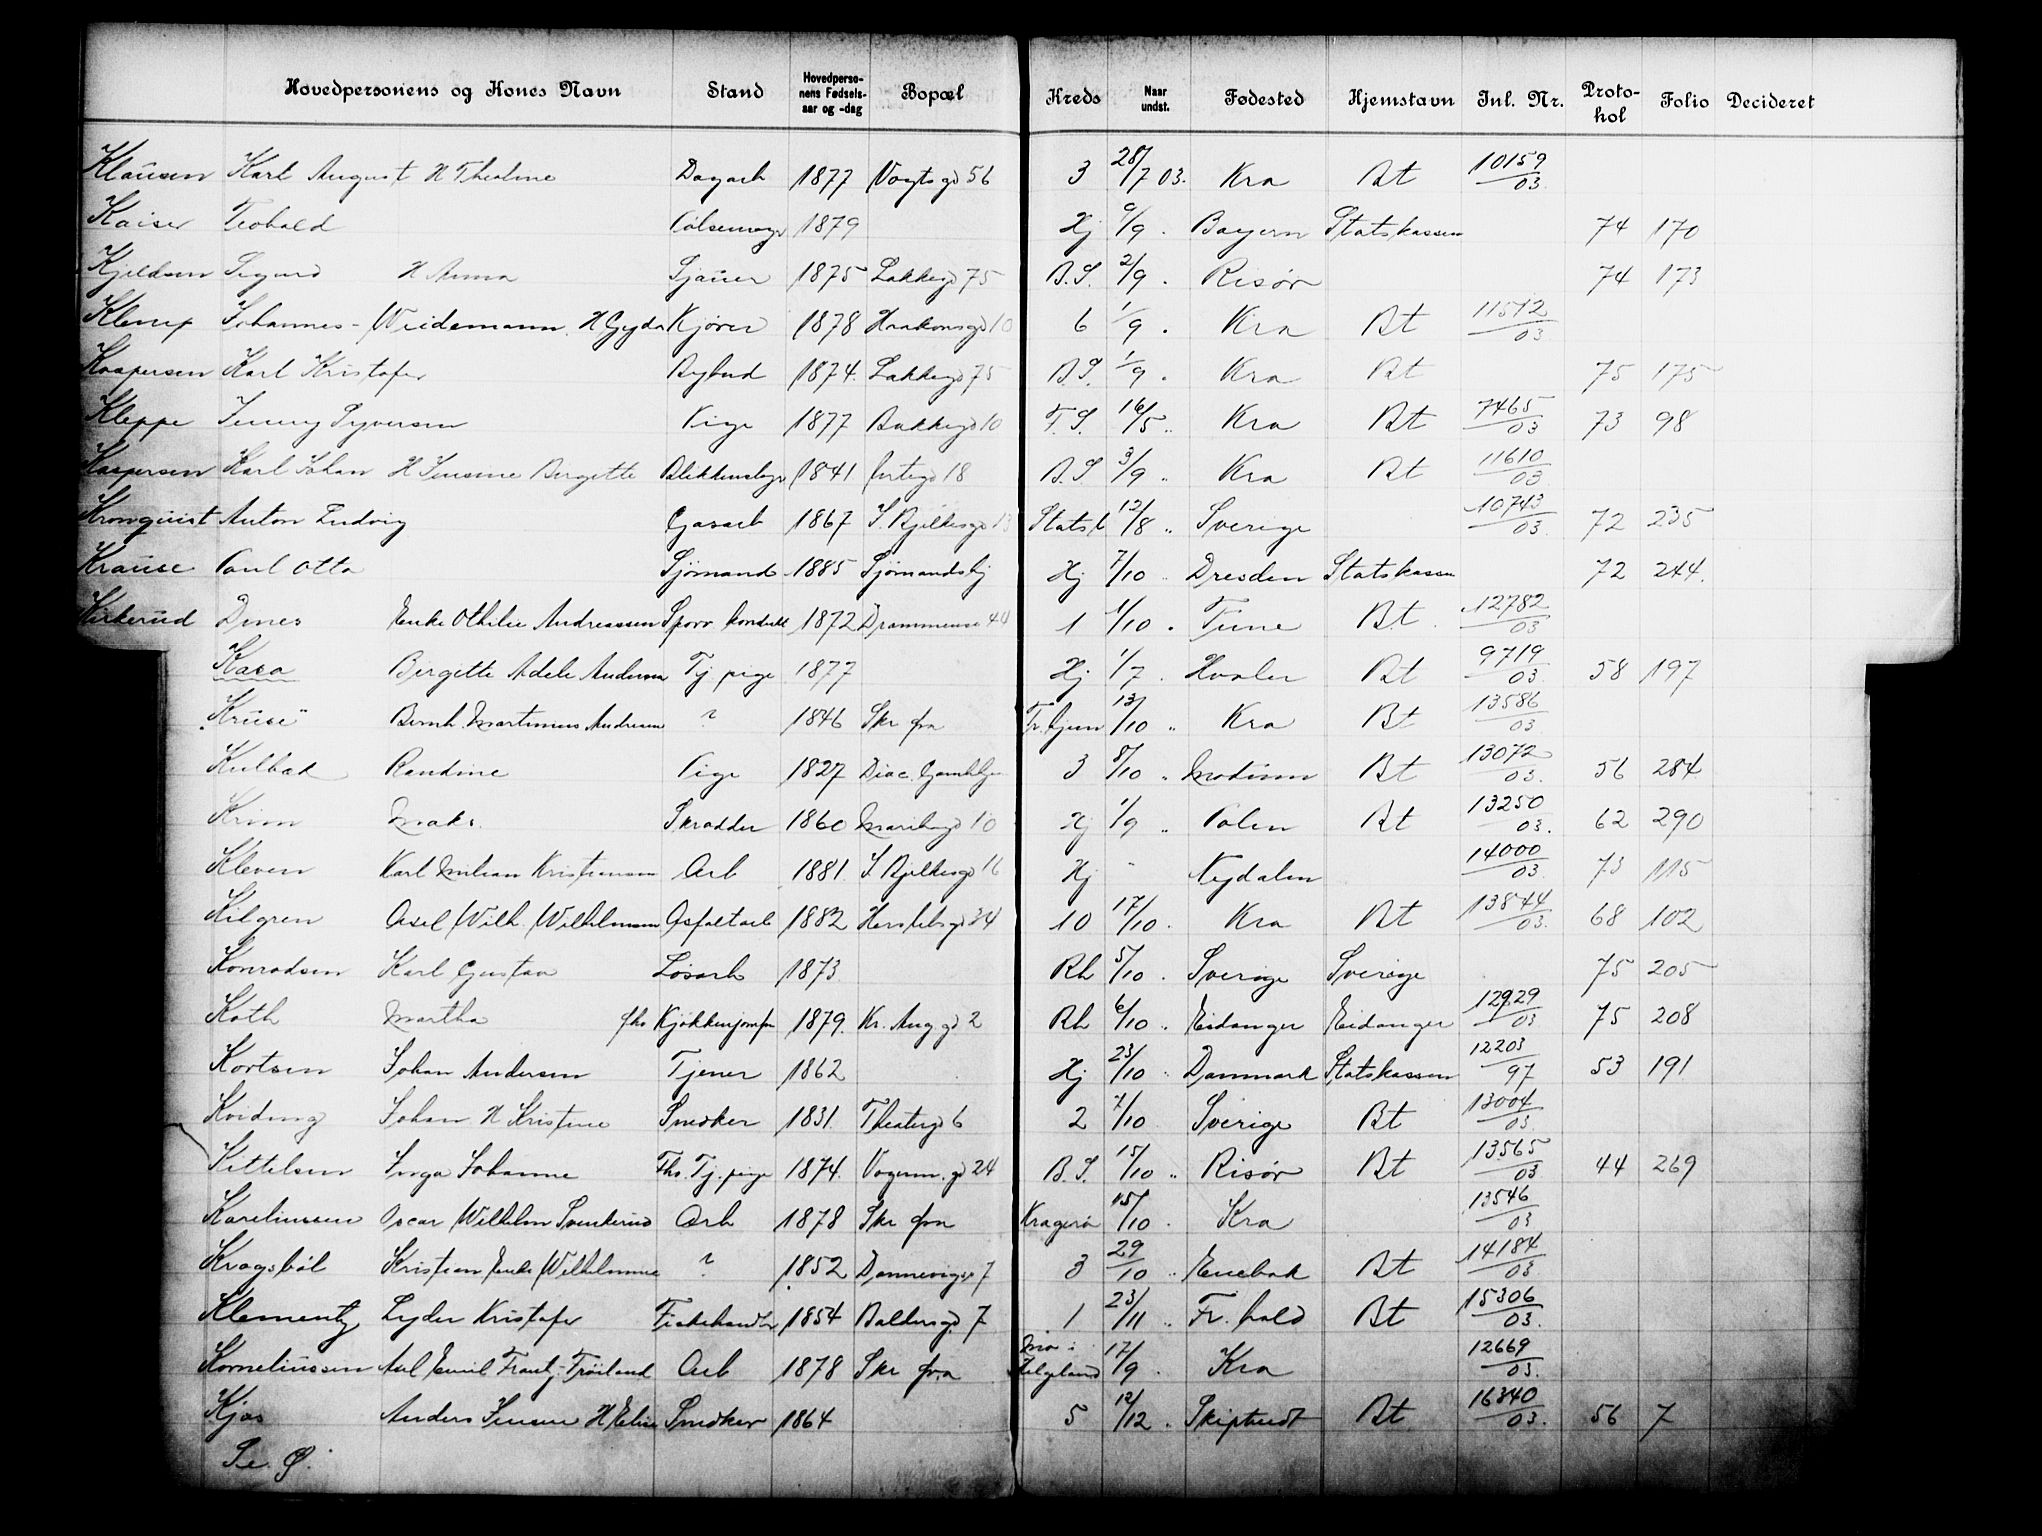 Hovedpersonens og Kones Navn | Stand | Hovedperso-nens Fødsels-aar og -dag | Bopæl | Kreds | Naar undst. | Fødested | Hjemstavn | Inl. Nr. | Proto-kol | Folio | Decideret
Klausen Karl August H Thealine | Dagarb | 1877 | Vogtsgd 56 | 3 | 28/7 03. | Kra | Bt | 10159/03.
Kaiser Teobald | Pølsemager | 1879 | Hj | 9/9 . | Bayern | Statskassen | 74 | 170
Kjeldsen Sigurd H Anna | Sjauer | 1875 | Lakkegd 75 | B.S. | 2/9 . | Risør | 74 | 173
Klerup Johannes - Weidemann. H Gyda | Kjører | 1878 | Haakonsgd 10 | 6 | 1/9 . | Kra | Bt | 11512/03
Kaspersen Karl Kristofer | Bybud | 1874. | Lakkegd 75 | B.S. | 1/9 . | Kra | Bt | 75 | 175
Kleppe Jenny Syversen | Pige | 1877 | Bakkegd 10 | F.S. | 16/5 " | Kra | Bt | 7465/03 | 73 | 98
Kaspersen Karl Johan H Jensine Bergette | Blikkenslager | 1841 | 18 | B.S | 3/9 " | Kra | Bt | 11610/03
Kronquist Anton Ludvig | Gasarb | 1867 | J. Bjelkesgd 13 | Statsk | 12/8 " | Sverige | 10743/03. | 72 | 235
Krause Paul Otto | Sjømand | 1885 | Sjømandshj | Hj | 7/10 " | Dresden | Statskassen | 72 | 244.
Kirkerud Dines Enke Othilie Andreassen | Sporv. konduktør | 1872 | Drammensv 44 | 1 | 1/10 . | Tune | Bt. | 12782/03
Kasa Bergitte Adele Andersen | Tj. pige | 1877 | Hj | 1/7 . | Hvaler | Bt | 9719/03 | 58 | 197
"Kruse" Bernh. Martinius Andresen | ? | 1846 | Skr fra | Tr. hjem | 13/10 " | Kra | Bt | 13586/03
Kulbæk Randine | Pige | 1827 | Diac. Gamlehjem | 3 | 8/10 " | Modum | Bt | 13072/03. | 56 | 284
Krim Maks. | Skrædder | 1860 | Maribogd 10 | Hj | 1/9 " | Polen | Bt | 13250/03. | 62 | 290
Kleven Karl Milian Kristiansen | Arb | 1881. | J. Bjelkesgd 16 | Hj | Nydalen | 14000/03. | 73 | 115
Kilgren Axel Wilh. Wilhelmsen | Asfaltarb | 1882 | Herslebsgd 24 | 10 | 17/10 . | Kra | Bt | 13844/03. | 68 | 102
Konradsen Karl Gustav | Løsarb | 1873 | Rh | 5/10 . | Sverige | Sverige | 75 | 205
Koth Martha | fhv Kjøkkenjomfru | 1879. | Kr. Aug. gd 2 | Rh | 6/10 " | Eidanger | Eidanger | 12929/03 | 75 | 208
Kortsen Johan Andersen | Tjener | 1862 | Hj | 23/10 " | Danmark | Statskassen | 12203/97 | 53 | 191
Kviding Johan H Kristine | Snedker | 1831. | Theatergd 6 | 2 | 7/10 | Sverige | Bt | 13004/03.
Kittelsen Inga Johanne | Fhv. Tj. pige | 1874. | Vognm. gd 24 | B.S. | 15/10 " | Risør | Bt | 13565/03. | 44 | 269
Kareliussen Oscar Wilhelm Svenkerud | Arb | 1878 | Skr fra | Kragerø | 15/10 . | Kra | 13546/03
Kragsbøl Kristian Enke Wilhelmine | ? | 1852 | Dannevigsv 7 | 3 | 29/10 " | Enebak | Bt | 14184/03
Klementz Lyder Kristofer | Fiskehandler | 1854 | Baldersgd. 7 | 1 | 23/11 " | Fr. hald | Bt | 15306/03.
Korneliussen Axel Emil Frantz - Trøiland | Arb | 1878 | Skr fra | Mo i Helgeland | 17/9 . | Kra | 12669/03.
Kjos Anders Jensen H Elin | Snedker | 1864 | 5 | 12/12 " | Skiptvedt | Bt. | 16340/03. | 56 | 7
Se Ø.